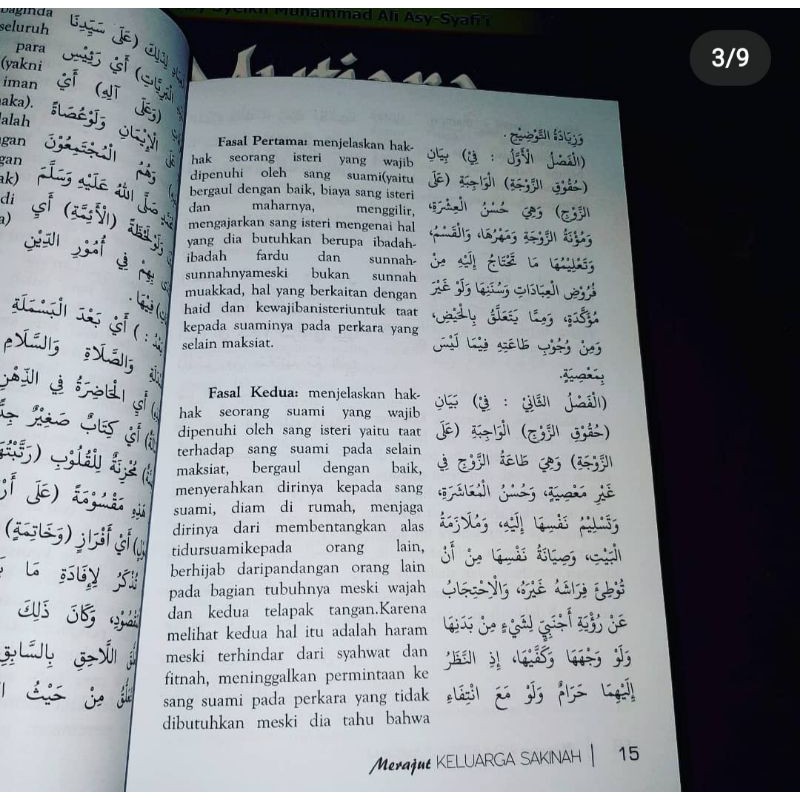 Syeikh Muhammad Ali Asy-Syafi'i
3/9
baginda
seluruh
para
(yakni
iman
naka).
alah
gan
gan
ak)
di
a)
(عَلَى سَيِّدِنَا
الْبَرِيَّاتِ) أَيْ رَئِيْسِ
(وَعَلَى آلِهِ) أَيْ
الْإِيْمَانِ وَلَوْعُصَاةً
وَهُمُ الْمُجْتَمِعُوْنَ
صَلَّى اللهُ عَلَيْهِ وَسَلَّمَ
وَلَوْلَحْظَةً (الْأَئِمَّةِ) أَيِ
بِهِمْ فِي أُمُوْرِ الدِّيْنِ
فِيْهَا.
أَيْ بَعْدَ الْبَسْمَلَةِ
وَالصَّلَاةِ وَالسَّلَامِ
أَيِ الْحَاضِرَةُ فِي الذِّهْنِ
أَيْ كِتَابٌ صَغِيْرٌ
مُحْزِنَةٌ لِلْقُلُوْبِ
مَقْسُوْمَةً (عَلَى
أَيْ أَفْرَازٍ (وَخَاتِمَةٍ)
تُذْكَرُ لِإِفَادَةِ مَا
وَكَانَ ذَلِكَ
اللَّاحِقِ بِالسَّابِقِ
مِنْ حَيْثُ
Fasal Pertama: menjelaskan hak-
hak seorang isteri yang wajib
dipenuhi oleh sang suami(yaitu
bergaul dengan baik, biaya sang isteri
dan maharnya, menggilir,
mengajarkan sang isteri mengenai hal
yang dia butuhkan berupa ibadah-
ibadah fardu dan sunnah-
sunnahnyameski bukan sunnah
muakkad, hal yang berkaitan dengan
haid dan kewajibanisteriuntuk taat
kepada suaminya pada perkara yang
selain maksiat.
Fasal Kedua: menjelaskan hak-
hak seorang suami yang wajib
dipenuhi oleh sang isteri yaitu taat
terhadap sang suami pada selain
maksiat, bergaul dengan baik,
menyerahkan dirinya kepada sang
suami, diam di rumah, menjaga
dirinya dari membentangkan alas
tidursuamikepada orang lain,
berhijab daripandangan orang lain
pada bagian tubuhnya meski wajah
dan kedua telapak tangan.Karena
melihat kedua hal itu adalah haram
meski terhindar dari syahwat dan
fitnah, meninggalkan permintaan ke
sang suami pada perkara yang tidak
dibutuhkan meski dia tahu bahwa
وَزِيَادَةُ التَّوْضِيْحِ .
(الْفَصْلُ الْأَوَّلُ : فِيْ) بَيَانِ
(حُقُوْقِ الزَّوْجَةِ) الْوَاجِبَةِ (عَلَى
الزَّوْجِ) وَهِيَ حُسْنُ الْعِشْرَةِ،
وَمُؤْنَةُ الزَّوْجَةِ وَمَهْرُهَا، وَالْقَسْمُ،
وَتَعْلِيْمُهَا مَا تَحْتَاجُ إِلَيْهِ مِنْ
فُرُوْضِ الْعِبَادَاتِ وَسُنَنِهَا وَلَوْ غَيْرَ
مُؤَكَّدَةٍ، وَمِمَّا يَتَعَلَّقُ بِالْحَيْضِ،
وَمِنْ وُجُوْبِ طَاعَتِهِ فِيْمَا لَيْسَ
بِمَعْصِيَةٍ.
(الْفَصْلُ الثَّانِيْ : فِيْ) بَيَانِ
(حُقُوْقِ الزَّوْجِ) الْوَاجِبَةِ (عَلَى
الزَّوْجَةِ) وَهِيَ طَاعَةُ الزَّوْجِ فِي
غَيْرِ مَعْصِيَةٍ، وَحُسْنُ الْمُعَاشَرَةِ،
وَتَسْلِيْمُ نَفْسِهَا إِلَيْهِ، وَمُلَازَمَةُ
الْبَيْتِ، وَصِيَانَةُ نَفْسِهَا مِنْ أَنْ
تُوْطِئَ فِرَاشَهُ غَيْرَهُ، وَالْاِحْتِجَابُ
عَنْ رُؤْيَةِ أَجْنَبِيٍّ لِشَيْءٍ مِنْ بَدَنِهَا
وَلَوْ وَجْهَهَا وَكَفَّيْهَا، إِذِ النَّظَرُ
إِلَيْهِمَا حَرَامٌ وَلَوْ مَعَ انْتِفَاءِ
Merajut KELUARGA SAKINAH | 15